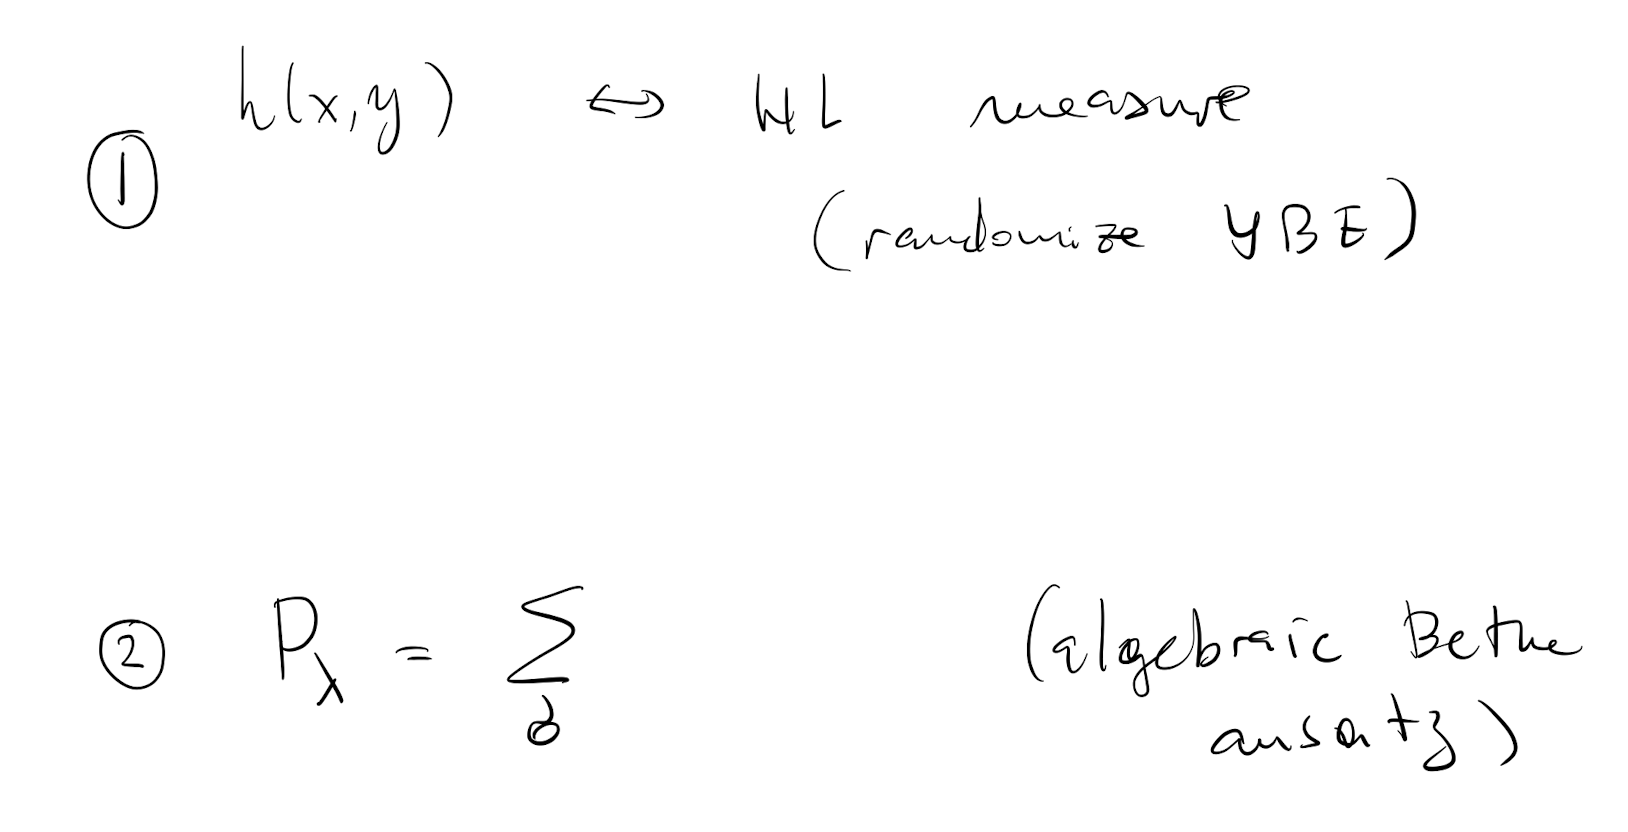 ① h(x,y) ↔ HL measure
(randomize YBE)
② P_λ = ∑_σ (algebraic Bethe
ansatz)